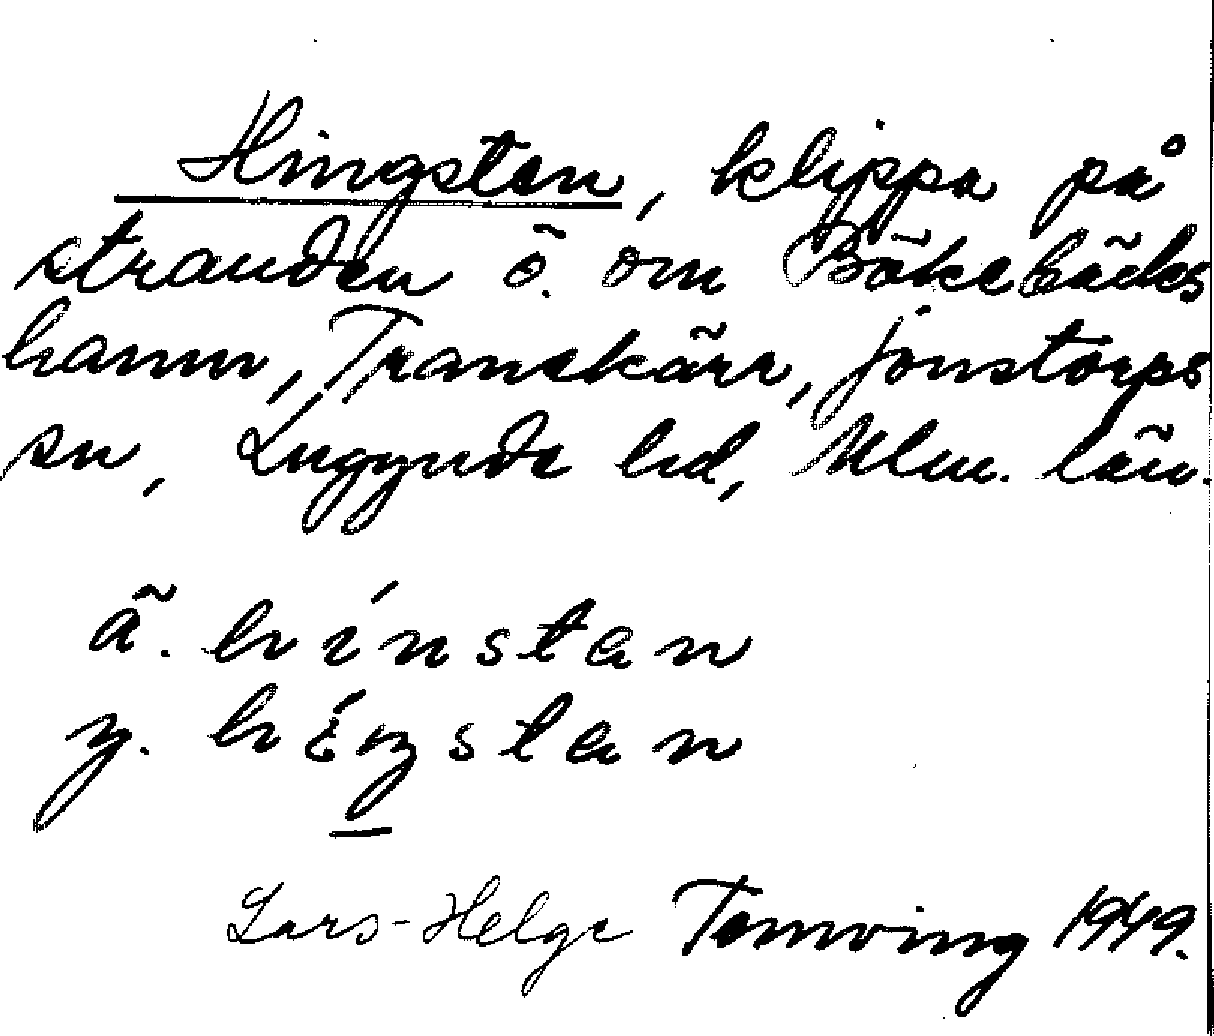 Hingsten, klippa på
stranden ö. om Bökebäcks
hamn, Tranekärr, Jonstorps
sn, Luggude hd, Mlm. län.
ä. hinstan
y. hiŋstan
Lars-Helge Temving 1949.